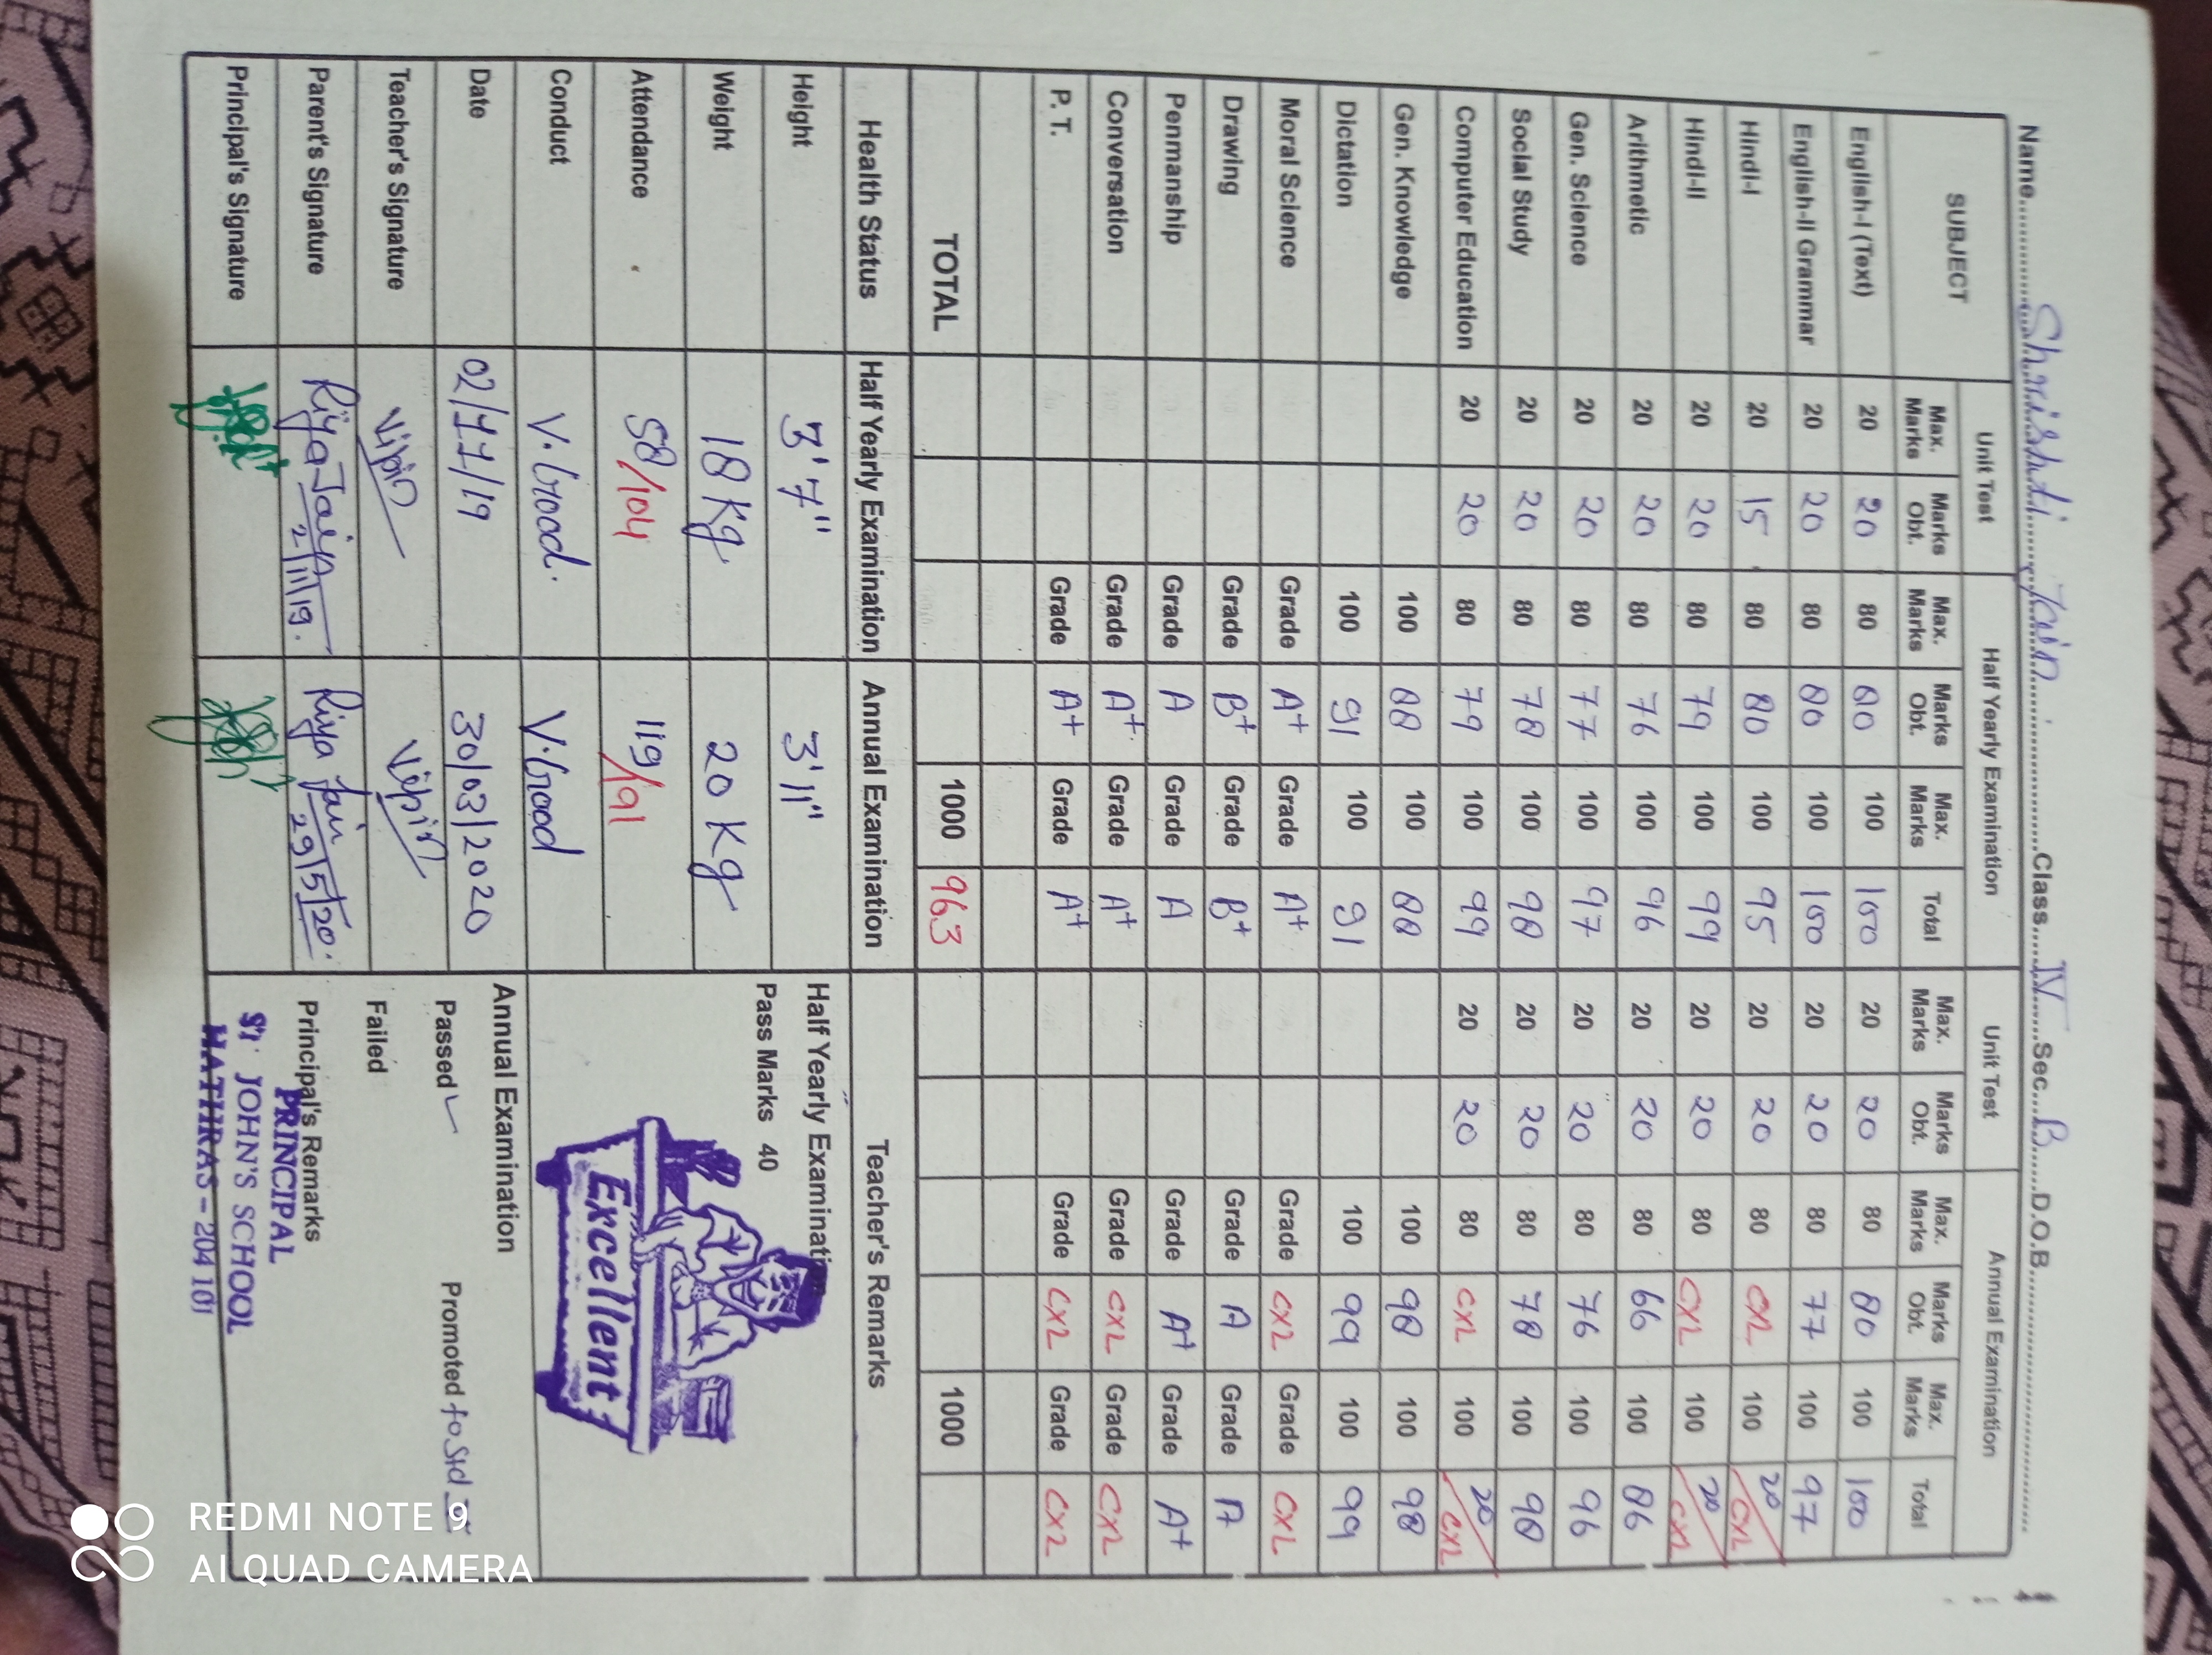 Name Shrishti Jain Class IV Sec. B D.O.B.
SUBJECT Unit Test Half Yearly Examination Unit Test Annual Examination
Max. Marks Marks Obt. Max. Marks Marks Obt. Max. Marks Total Max. Marks Marks Obt. Max. Marks Marks Obt. Max. Marks Total
English-I (Text) 20 20 80 80 100 100 20 20 80 80 100 100
English-II Grammar 20 20 80 80 100 100 20 20 80 77 100 97
Hindi-I 20 15 80 80 100 95 20 20 80 CXL 100 20/CXL
Hindi-II 20 20 80 79 100 99 20 20 80 CXL 100 20/CXL
Arithmetic 20 20 80 76 100 96 20 20 80 66 100 86
Gen. Science 20 20 80 77 100 97 20 20 80 76 100 96
Social Study 20 20 80 78 100 98 20 20 80 78 100 98
Computer Education 20 20 80 79 100 99 20 20 80 CXL 100 20/CXL
Gen. Knowledge 100 88 100 88 100 98 100 98
Dictation 100 91 100 91 100 99 100 99
Moral Science Grade A+ Grade A+ Grade CXL Grade CXL
Drawing Grade B+ Grade B+ Grade A Grade A
Penmanship Grade A Grade A Grade A+ Grade A+
Conversation Grade A+ Grade A+ Grade CXL Grade CXL
P.T. Grade A+ Grade A+ Grade CXL Grade CXL
TOTAL 1000 963 1000
Health Status Half Yearly Examination Annual Examination Teacher's Remarks
Height 3'7" 3'11" Half Yearly Examination
Weight 18 Kg 20 Kg Pass Marks 40
Attendance 58/104 119/191
Excellent
Conduct V.Good. V.Good
Date 02/11/19 30/03/2020 Annual Examination
Teacher's Signature Vipin Vipin Passed Promoted to Std
Failed
Parent's Signature Riya Jain 2/11/19. Riya Jain 29/5/20.
Principal's Signature Principal's Remarks
PRINCIPAL
ST. JOHN'S SCHOOL
HATHRAS-204 101
REDMI NOTE 9
AI QUAD CAMERA